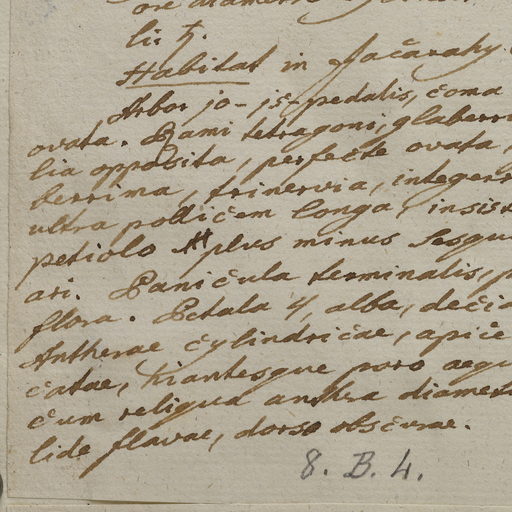 ore diametro
lis ♄.
Habitat in Jačarahy.
Arbor 10-15-pedalis, čoma
ovata. Rami tetragoni, glaberri
lia opposita, perfecte ovata,
berrima, trinervia, integerr
ultra polličem longa, insist
petiolo plus minus sesqu
ari. Paničula terminalis, p
flora. Petala 4, alba, dečid
Antherae čylindričae, apiče
čatae, hiantesque poro aequ
čum reliqua anthera diamet
lide flavae, dorso obsčurae.
8. B. 4.